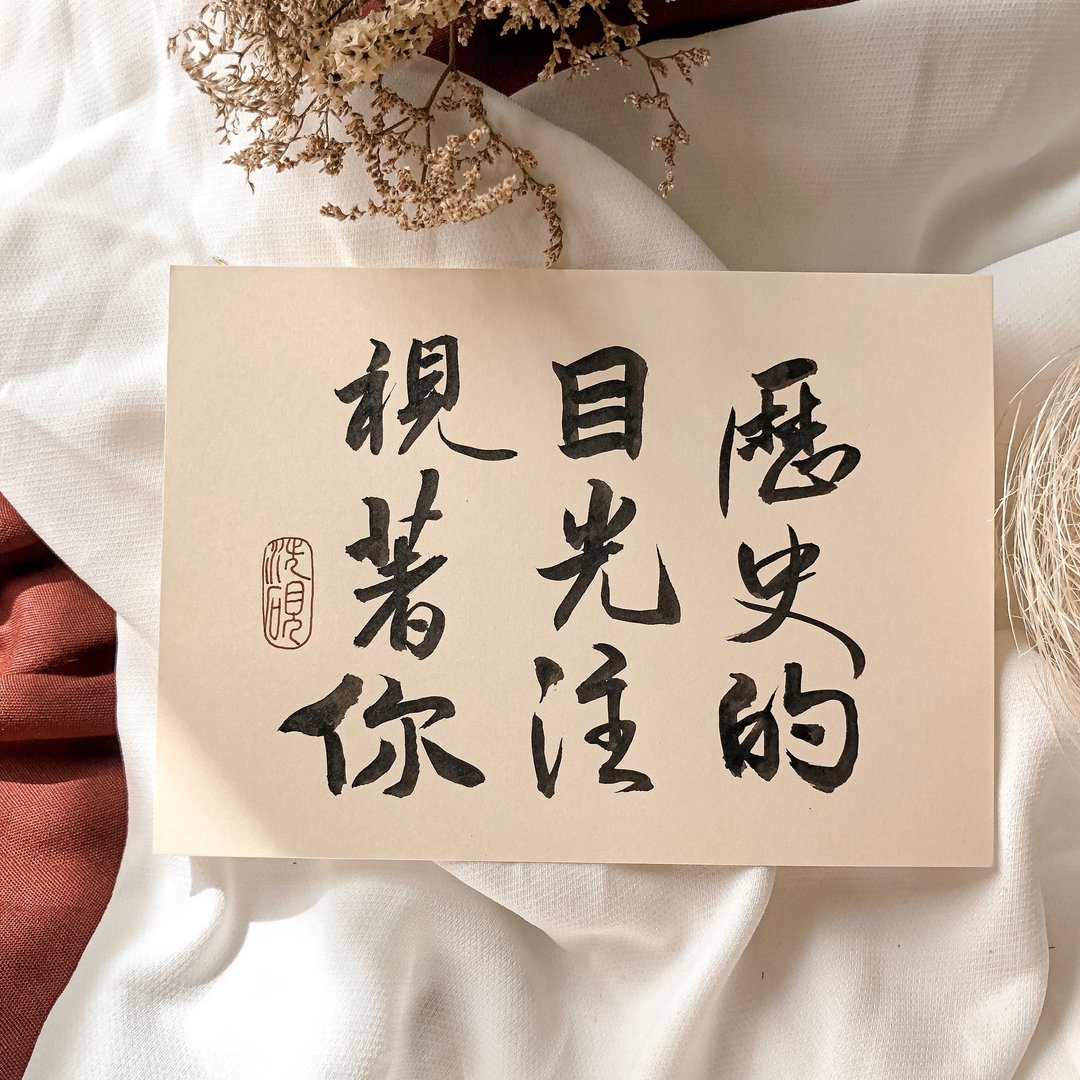 歷史的
目光注
視著你
洗硯